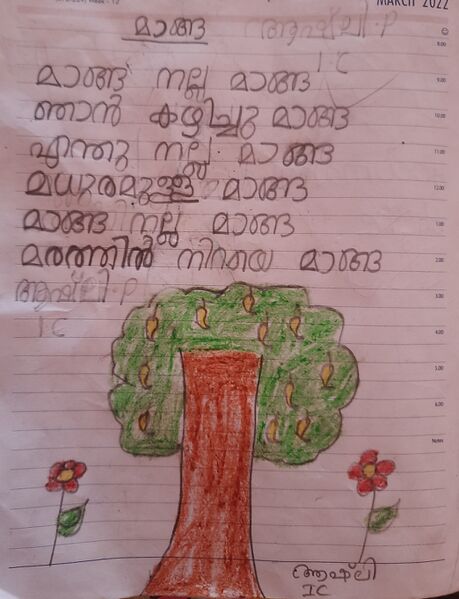 MARCH 2022
മാങ്ങ ആഷ്ലി.P
I C
മാങ്ങ നല്ല മാങ്ങ
ഞാൻ കഴിച്ചു മാങ്ങ
എന്തു നല്ല മാങ്ങ
മധുരമുള്ള മാങ്ങ
മാങ്ങ നല്ല മാങ്ങ
മരത്തിൽ നിറയെ മാങ്ങ
ആഷ്ലി.P
I C
8.00
9.00
10.00
11.00
12.00
1.00
2.00
3.00
4.00
5.00
6.00
Notes
ആഷ്ലി
IC